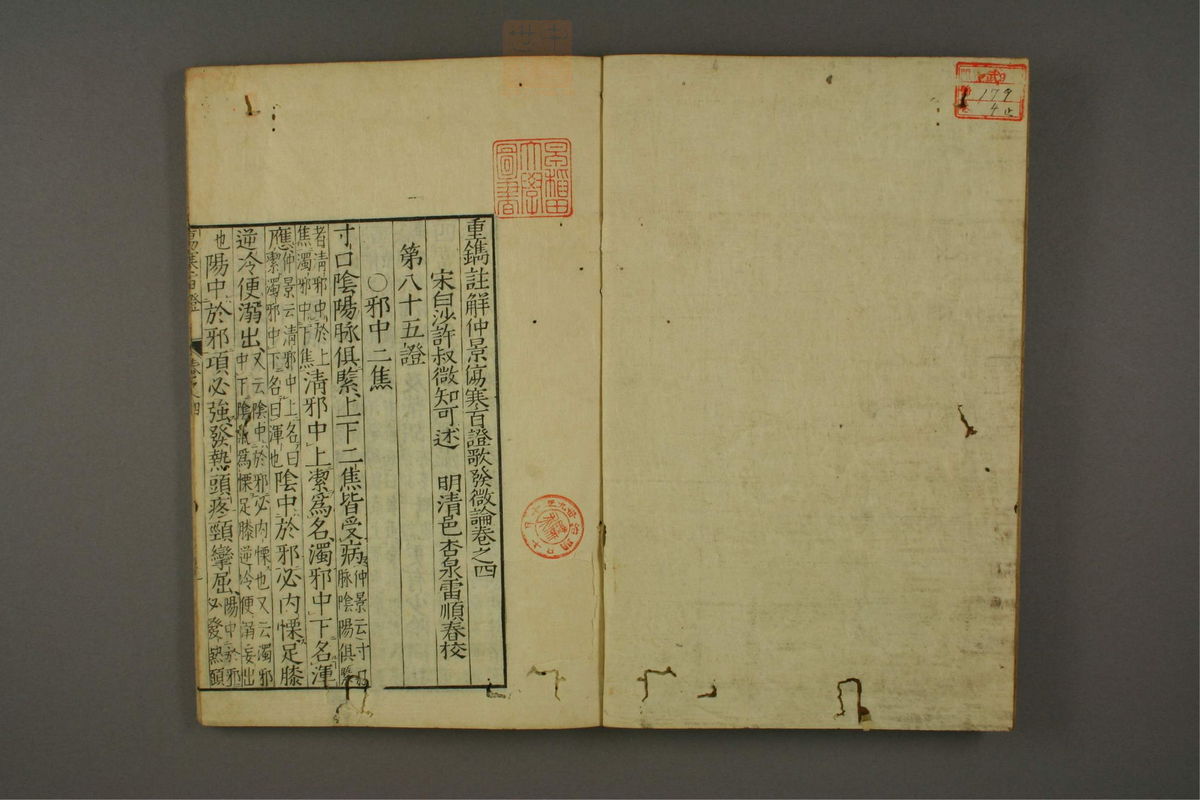 重鐫註解仲景傷寒百證歌發微論卷之四
宋白沙許叔微知可述　明清邑杏泉雷順春校
第八十五證
○邪中二焦
寸口陰陽脉俱緊上下二焦皆受病仲景云寸口脉陰陽俱緊
者清邪中於上焦濁邪中下焦清邪中上潔爲名濁邪中下名渾
應仲景云清邪中上名曰潔濁邪中下名曰渾也陰中於邪必内慄足膝
逆冷便溺出又云陰中於邪必内慄也又云濁邪中下陰氣爲慄足膝逆冷便溺妄出
也陽中於邪項必強發熱頭疼頸攣屈陽中於邪必發熱頭
傷寒百證
卷之四
早稻田大學圖書
179
4